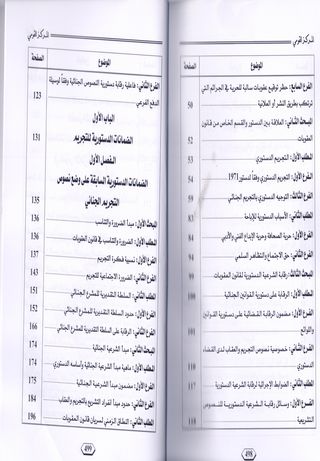 المركز القومي
الموضوع
الصفحة
الفرع السابع: حظر توقيع عقوبات سالبة للحرية في الجرائم التي
ترتكب بطريق النشر أو العلانية
50
المبحث الثاني: العلاقة بين الدستور والقسم الخاص من قانون
العقوبات
52
المطلب الأول: التجريم الدستوري
53
الفرع الأول: التجريم الدستوري وفقا لدستور 1971
54
المطلب الثاني: التوجيه الدستوري بالتجريم الجنائي
59
المبحث الثاني: الأسباب الدستورية للإباحة
83
الفرع الأول: حرية الصحافة وحرية الإبداع الفني والأدبي
84
الفرع الثاني: حق الاجتماع والتظاهر السلمي
94
المبحث الثالث: رقابة الشرعية الدستورية لقانون العقوبات
99
المطلب الأول: الرقابة على دستورية القوانين الجنائية
100
الفرع الأول: مضمون الرقابة القضائية على دستورية القوانين
واللوائح
101
الفرع الثاني: خصوصية نصوص التجريم والعقاب لدى القضاء
الدستوري
110
المطلب الثاني: الضوابط الإجرائية لرقابة الشرعية الدستورية
117
الفرع الأول: وسائل رقابة الشرعية الدستورية للنصوص
التشريعية
118
498
المركز القومي
الموضوع
الصفحة
الفرع الثاني: فاعلية رقابة دستورية النصوص الجنائية وفقاً لوسيلة
الدفع الفرعي
123
الباب الأول
الضمانات الدستورية للتجريم
131
الفصل الأول
الضمانات الدستورية السابقة على وضع نصوص
التجريم الجنائي
135
المبحث الأول: مبدأ الضرورة والتناسب
136
المطلب الأول: الضرورة والتناسب في قانون العقوبات
136
الفرع الأول: نسبية فكرة التجريم
137
الفرع الثاني: الضرورة الاجتماعية للتجريم
143
المطلب الثاني: السلطة التقديرية للمشرع الجنائي
151
الفرع الأول: حدود السلطة التقديرية للمشرع الجنائي
152
الفرع الثاني: الرقابة على السلطة التقديرية للمشرع الجنائي
166
المبحث الثاني: مبدأ الشرعية الجنائية
174
المطلب الأول: ماهية مبدأ الشرعية الجنائية وأساسه الدستوري
174
الفرع الأول: مضمون مبدأ الشرعية الجنائية
175
الفرع الثاني: حدود مبدأ انفراد التشريع بالتجريم والعقاب
184
المطلب الثاني: النطاق الزمني لسريان قانون العقوبات
196
499